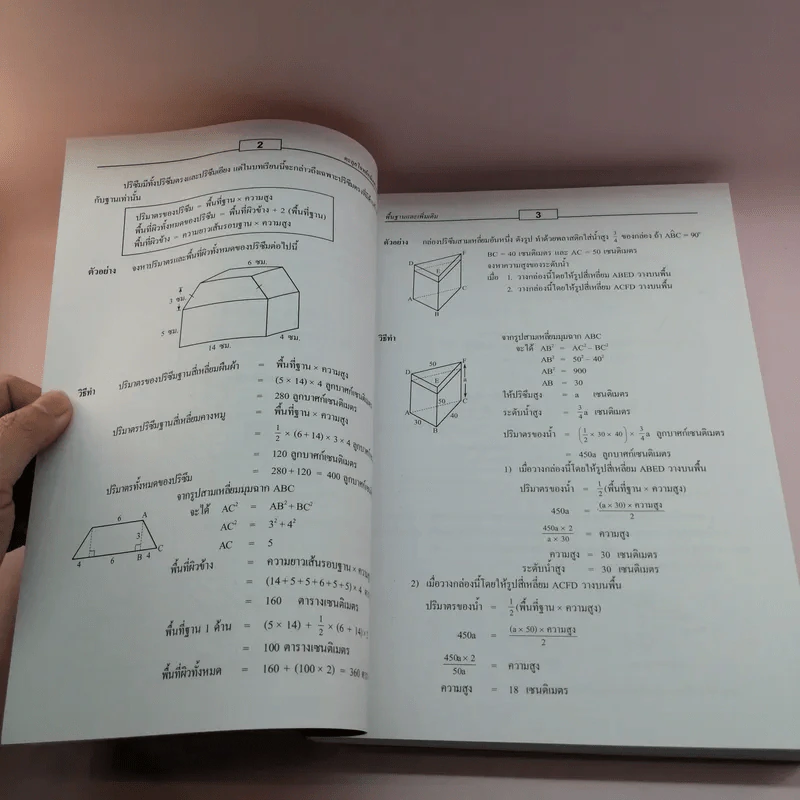 2
ปริซึมมีทั้งปริซึมตรงและปริซึมเอียง แต่ในบทเรียนนี้จะกล่าวถึงเฉพาะปริซึมตรง
กันฐานเท่านั้น
ปริมาตรของปริซึม = พื้นที่ฐาน × ความสูง
พื้นที่ผิวทั้งหมดของปริซึม = พื้นที่ผิวข้าง + 2 (พื้นที่ฐาน)
พื้นที่ผิวข้าง = ความยาวเส้นรอบฐาน × ความสูง
ตัวอย่าง จงหาปริมาตรและพื้นที่ผิวทั้งหมดของปริซึมต่อไปนี้
6 ซม.
3 ซม.
5 ซม.
14 ซม.
4 ซม.
วิธีทำ ปริมาตรของปริซึมฐานสี่เหลี่ยมผืนผ้า = พื้นที่ฐาน × ความสูง
= (5 × 14) × 4 ลูกบาศก์เซนติเมตร
= 280 ลูกบาศก์เซนติเมตร
ปริมาตรปริซึมฐานสี่เหลี่ยมคางหมู = พื้นที่ฐาน × ความสูง
= 1/2 × (6 + 14) × 3 × 4 ลูกบาศก์
= 120 ลูกบาศก์เซนติเมตร
ปริมาตรทั้งหมดของปริซึม = 280 + 120 = 400 ลูกบาศก์
จากรูปสามเหลี่ยมมุมฉาก ABC
จะได้ AC² = AB² + BC²
AC² = 3² + 4²
AC = 5
6 A
3
C
4 6 B 4
พื้นที่ผิวข้าง = ความยาวเส้นรอบฐาน ×
= (14 + 5 + 5 + 6 + 5 + 5) × 4
= 160 ตารางเซนติเมตร
พื้นที่ฐาน 1 ด้าน = (5 × 14) + 1/2 × (6 + 14)
= 100 ตารางเซนติเมตร
พื้นที่ผิวทั้งหมด = 160 + (100 × 2) = 360
พื้นฐานและเพิ่มเติม
3
ตัวอย่าง กล่องปริซึมสามเหลี่ยมอันหนึ่ง ดังรูป ทำด้วยพลาสติกใส่น้ำสูง 3/4 ของกล่อง ถ้า AB̂C = 90°
BC = 40 เซนติเมตร และ AC = 50 เซนติเมตร
จงหาความสูงของระดับน้ำ
เมื่อ 1. วางกล่องนี้โดยให้รูปสี่เหลี่ยม ABED วางบนพื้น
2. วางกล่องนี้โดยให้รูปสี่เหลี่ยม ACFD วางบนพื้น
F
D
E
C
A
B
วิธีทำ จากรูปสามเหลี่ยมมุมฉาก ABC
จะได้ AB² = AC² – BC²
AB² = 50² – 40²
AB² = 900
AB = 30
ให้ปริซึมสูง = a เซนติเมตร
ระดับน้ำสูง = 3/4a เซนติเมตร
ปริมาตรของน้ำ = (1/2 × 30 × 40) × 3/4a ลูกบาศก์เซนติเมตร
= 450a ลูกบาศก์เซนติเมตร
50 F
D
E
a
50 C
A
30 40
B
1) เมื่อวางกล่องนี้โดยให้รูปสี่เหลี่ยม ABED วางบนพื้น
ปริมาตรของน้ำ = 1/2(พื้นที่ฐาน × ความสูง)
450a = (a × 30) × ความสูง/2
450a × 2/a × 30 = ความสูง
ความสูง = 30 เซนติเมตร
ระดับน้ำสูง = 30 เซนติเมตร
2) เมื่อวางกล่องนี้โดยให้รูปสี่เหลี่ยม ACFD วางบนพื้น
ปริมาตรของน้ำ = 1/2(พื้นที่ฐาน × ความสูง)
450a = (a × 50) × ความสูง/2
450a × 2/50a = ความสูง
ความสูง = 18 เซนติเมตร